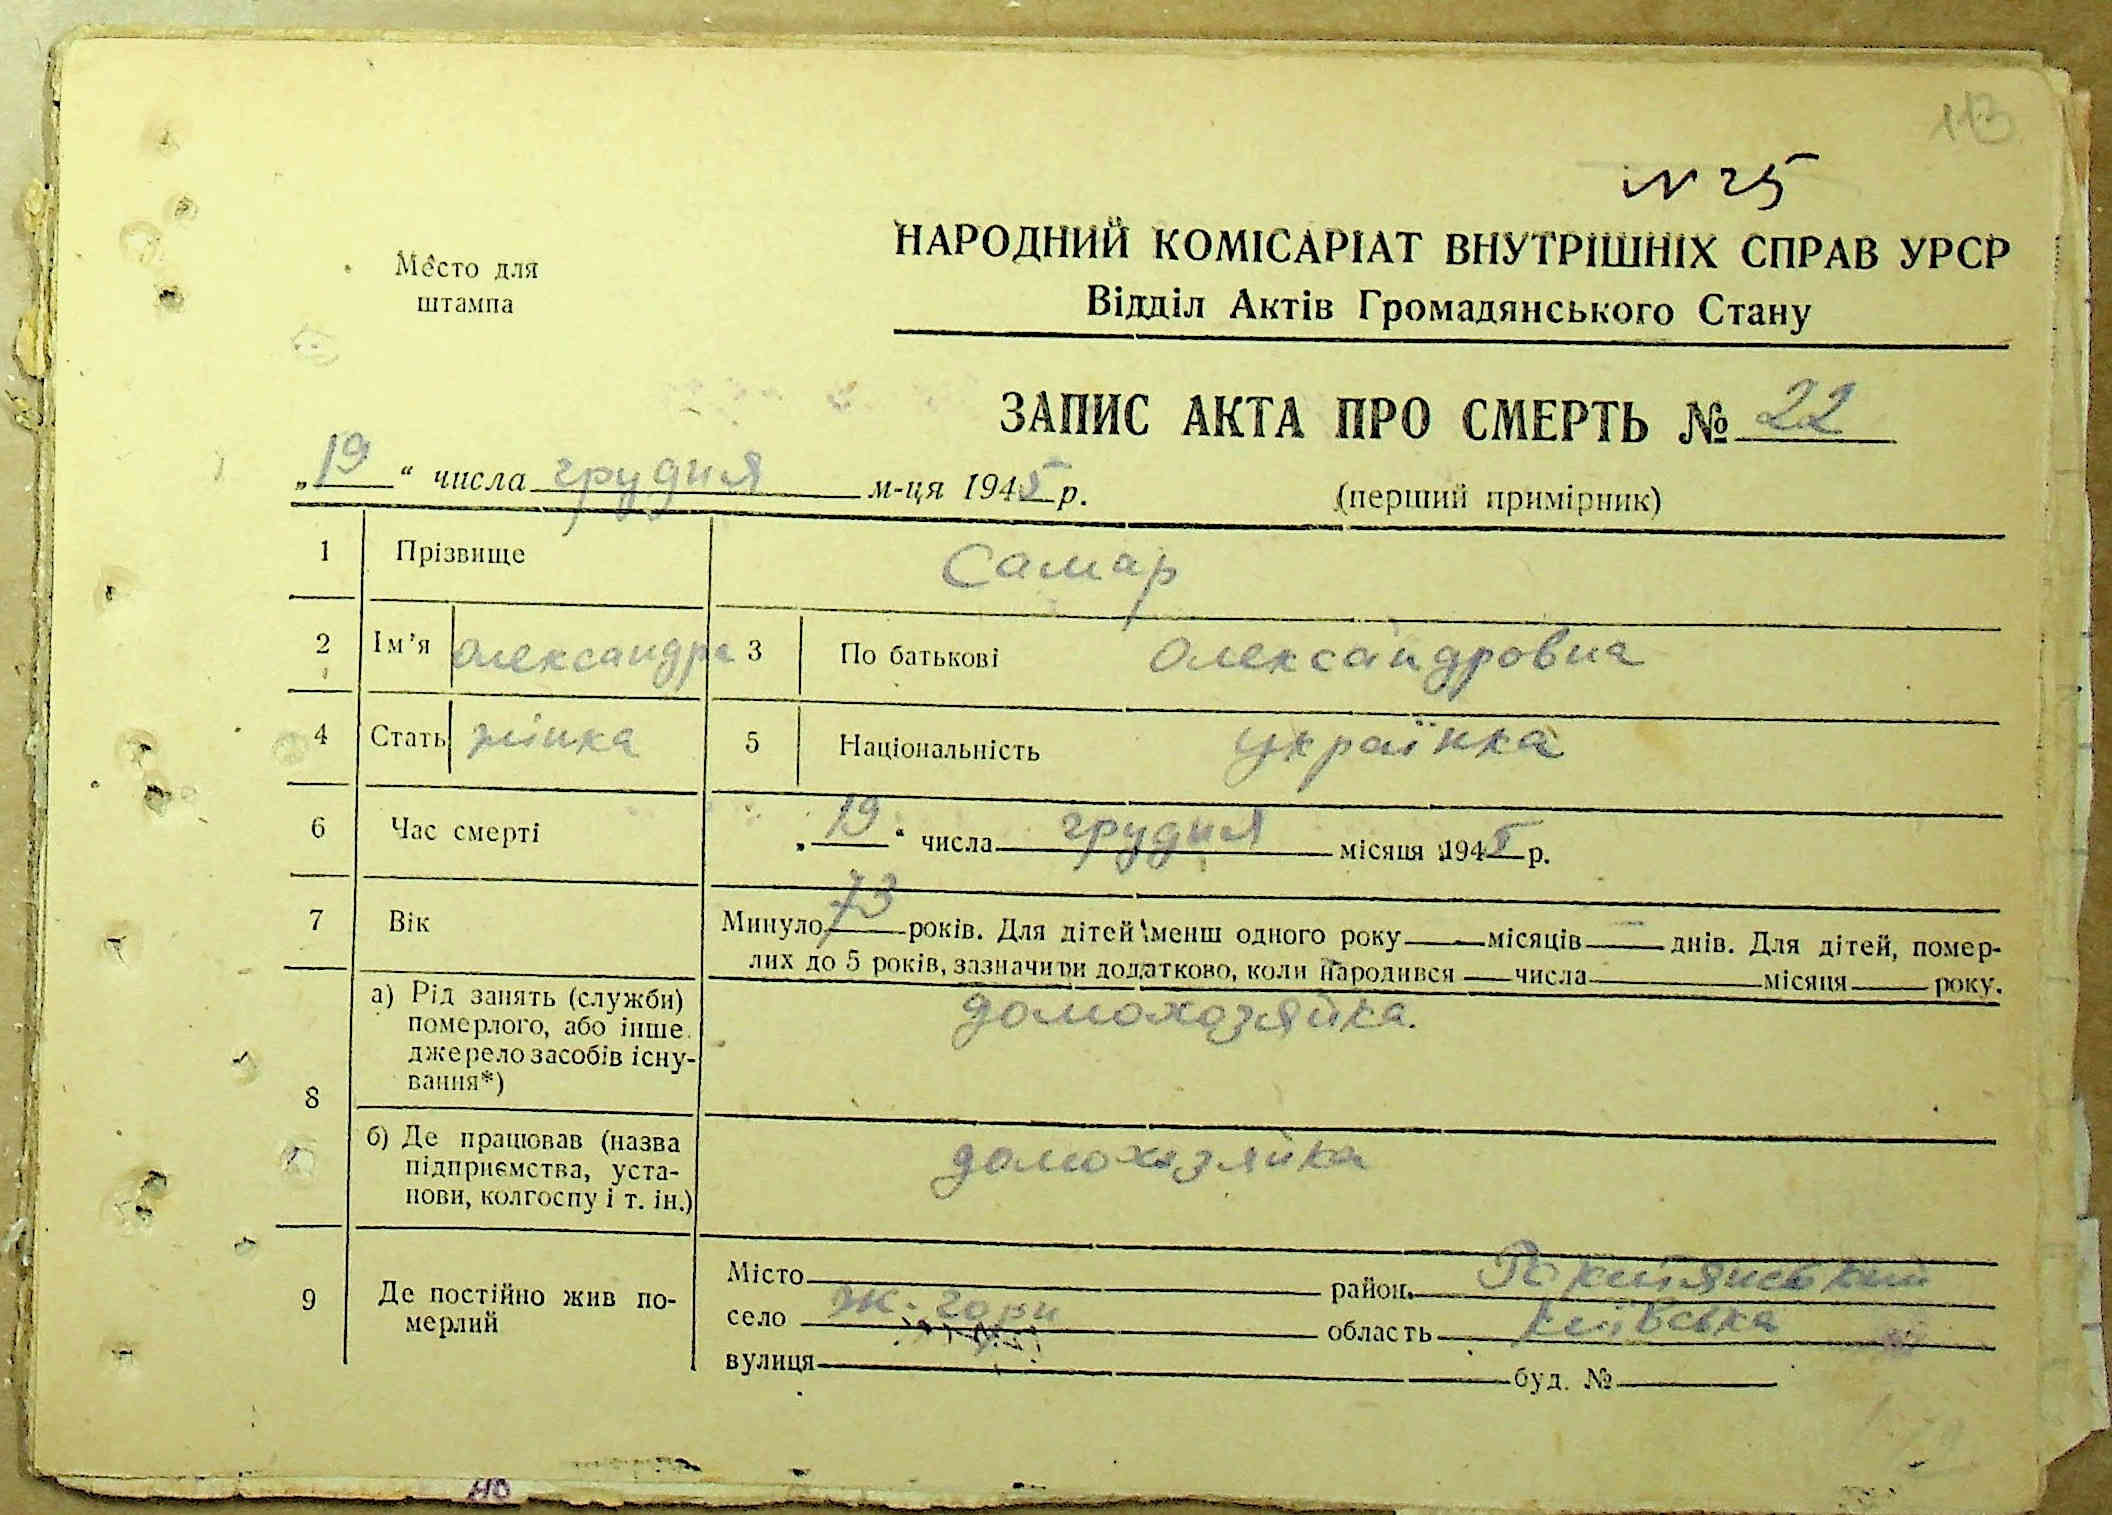 113
№ 25
Место для
штампа
НАРОДНИЙ КОМІСАРІАТ ВНУТРІШНІХ СПРАВ УРСР
Відділ Актів Громадянського Стану
ЗАПИС АКТА ПРО СМЕРТЬ № 22
„19“ числа грудня м-ця 1945 р. (перший примірник)
1 Прізвище Самар
2 Ім’я Олександра 3 По батькові Олександровна
4 Стать жінка 5 Національність українка
6 Час смерті „19“ числа грудня місяця 1945 р.
7 Вік Минуло 73 років. Для дітей менш одного року — місяців — днів. Для дітей, помер-
лих до 5 років, зазначити додатково, коли народився — числа — місяця — року.
8 а) Рід занять (служби) домохозяйка.
померлого, або інше
джерело засобів існу-
вання*)
б) Де працював (назва домохозяйка
підприємства, уста-
нови, колгоспу і т. ін.)
9 Де постійно жив по-
мерлий
Місто район Рокитянський
село Ж. гори область київська
вулиця буд. №